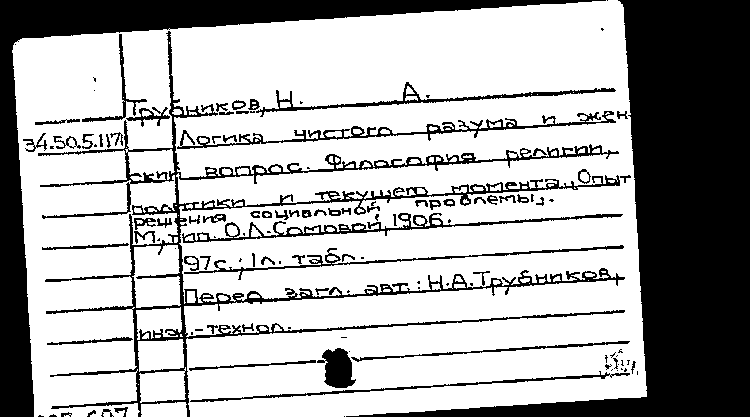 Трубников, Н. А.
34.50.5.117 Логика чистого разума и жен-
ский вопрос. Философия религии,
политики и текущего момента. „Опыт
решения социальной проблемы„.
М., тип. О.Л.Сомовой, 1906.
97с.; 1л. табл.
Перед загл. авт.: Н.А.Трубников,
инж.-технол.